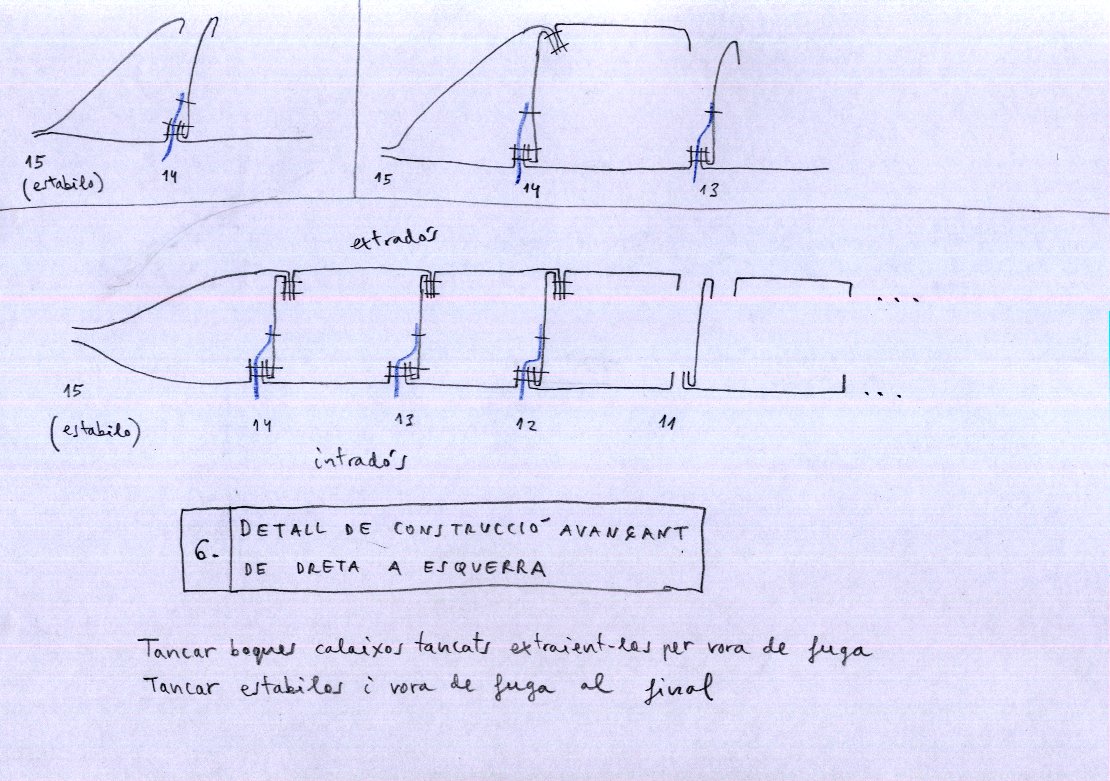 15
(estabilo)
14
15
14
13
extradós
15
(estabilo)
14
13
12
11
...
...
intradós
6.
DETALL DE CONSTRUCCIÓ AVANÇANT
DE DRETA A ESQUERRA
Tancar boques calaixos tancats extraient-les per vora de fuga
Tancar estabilos i vora de fuga al final